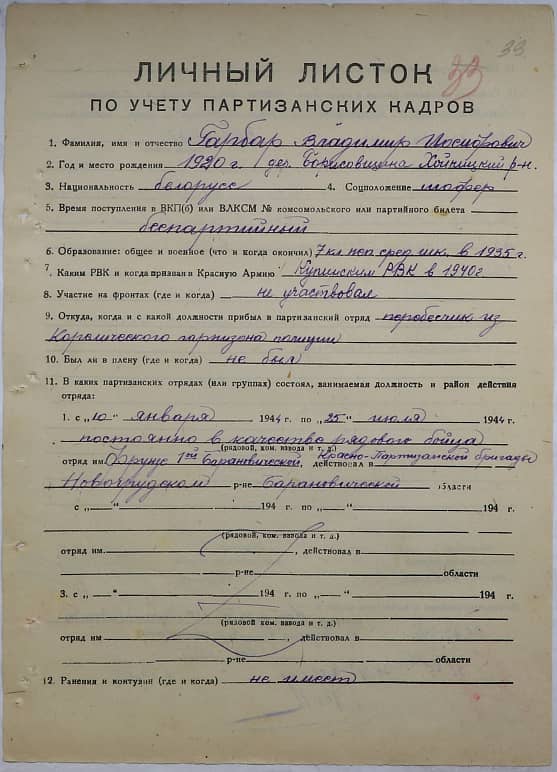 33
33
ЛИЧНЫЙ ЛИСТОК
ПО УЧЕТУ ПАРТИЗАНСКИХ КАДРОВ
1. Фамилия, имя и отчество Гарбар Владимир Иосифович
2. Год и место рождения 1920 г. дер. Борисовщина Хойникский р-н.
3. Национальность белорусс 4. Соцположение шофер
5. Время поступления в ВКП(б) или ВЛКСМ № комсомольского или партийного билета
беспартийный
6. Образование: общее и военное (что и когда окончил) 7 кл неп сред шк. в 1935 г.
7. Каким РВК и когда призван в Красную Армию РВК в 1940 г
8. Участие на фронтах (где и когда) не участвовал
9. Откуда, когда и с какой должности прибыл в партизанский отряд из
Кореличского гарнизона полиции
10. Был ли в плену (где и когда) не был
11. В каких партизанских отрядах (или группах) состоял, занимаемая должность и район действия
отряда:
1. с „10“ января 1944 г. по „25“ июля 1944 г.
постоянно в качестве рядового бойца
(рядовой, ком. взвода и т. д.)
отряд им Фрунзе 1ой Барановической, действовал в Красно-Партизанской бригады
Новогрудском р-не Барановической области
с „ “ 194 г. по „ “ 194 г.
(рядовой, ком. взвода и т. д.)
отряд им. , действовал в
р-не области
3. с „ “ 194 г. по „ “ 194 г.
(рядовой ком. взвода и т. д.)
отряд им , действовал в
р-не области
12. Ранения и контузии (где и когда) не имеет